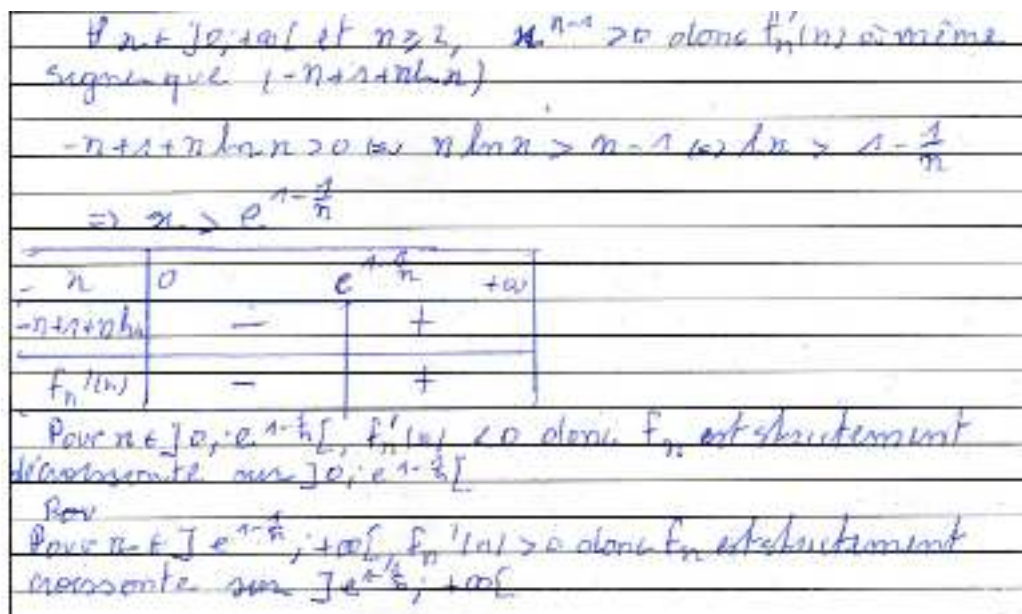 ∀ x ∈ ]0;+∞[ et n≥2, x^{n-1} >0 donc f_n'(x) a même
signe que (-n+1+n ln x)
-n+1+n ln x >0 ⇔ n ln x > n-1 ⇔ ln x > 1-\frac{1}{n}
⇒ x > e^{1-\frac{1}{n}}
x 0 e^{1-\frac{1}{n}} +∞
-n+1+n ln - +
f_n'(x) - +
Pour x ∈ ]0; e^{1-\frac{1}{n}}[, f_n'(x) <0 donc f_n est strictement
décroissante sur ]0; e^{1-\frac{1}{n}}[
Pour
Pour x ∈ ] e^{1-\frac{1}{n}}; +∞[, f_n'(x) >0 donc f_n est strictement
croissante sur ]e^{1-\frac{1}{n}}; +∞[